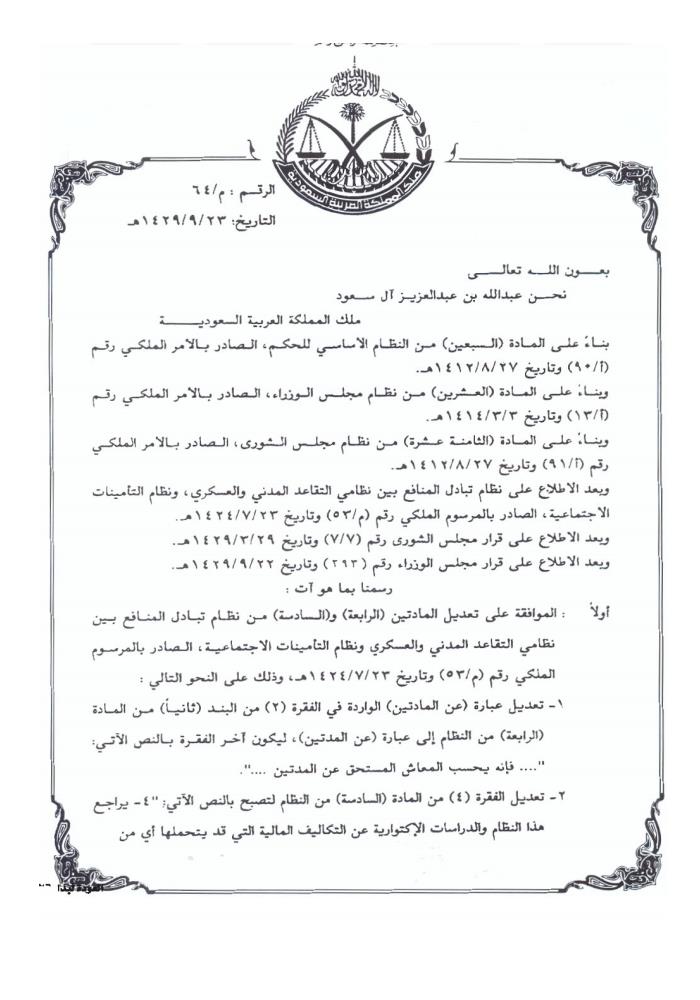 ملك المملكة العربية السعودية
الرقم : م/٦٤
التاريخ: ١٤٢٩/٩/٢٣هـ
بعون الله تعالى
نحن عبدالله بن عبدالعزيز آل سعود
ملك المملكة العربية السعودية
بناءً على المادة (السبعين) من النظام الأساسي للحكم، الصادر بالأمر الملكي رقم
(أ/٩٠) وتاريخ ١٤١٢/٨/٢٧هـ.
وبناءً على المادة (العشرين) من نظام مجلس الوزراء، الصادر بالأمر الملكي رقم
(أ/١٣) وتاريخ ١٤١٤/٣/٣هـ.
وبناءً على المادة (الثامنة عشرة) من نظام مجلس الشورى، الصادر بالأمر الملكي
رقم (أ/٩١) وتاريخ ١٤١٢/٨/٢٧هـ.
وبعد الاطلاع على نظام تبادل المنافع بين نظامي التقاعد المدني والعسكري، ونظام التأمينات
الاجتماعية، الصادر بالمرسوم الملكي رقم (م/٥٣) وتاريخ ١٤٢٤/٧/٢٣هـ.
وبعد الاطلاع على قرار مجلس الشورى رقم (٧/٧) وتاريخ ١٤٢٩/٣/٢٩هـ.
وبعد الاطلاع على قرار مجلس الوزراء رقم (٢٩٣) وتاريخ ١٤٢٩/٩/٢٢هـ.
رسمنا بما هو آت :
أولاً : الموافقة على تعديل المادتين (الرابعة) و(السادسة) من نظام تبادل المنافع بين
نظامي التقاعد المدني والعسكري ونظام التأمينات الاجتماعية، الصادر بالمرسوم
الملكي رقم (م/٥٣) وتاريخ ١٤٢٤/٧/٢٣هـ، وذلك على النحو التالي :
١- تعديل عبارة (عن المادتين) الواردة في الفقرة (٢) من البند (ثانياً) من المادة
(الرابعة) من النظام إلى عبارة (عن المدتين)، ليكون آخر الفقرة بالنص الآتي:
".... فإنه يحسب المعاش المستحق عن المدتين ....".
٢- تعديل الفقرة (٤) من المادة (السادسة) من النظام لتصبح بالنص الآتي: "٤- يراجع
هذا النظام والدراسات الإكتوارية عن التكاليف المالية التي قد يتحملها أي من